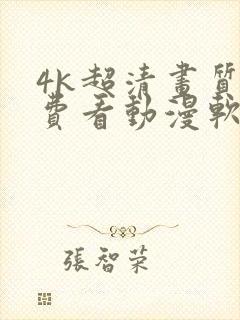 4k超清畫質
費看動漫軟
張智榮